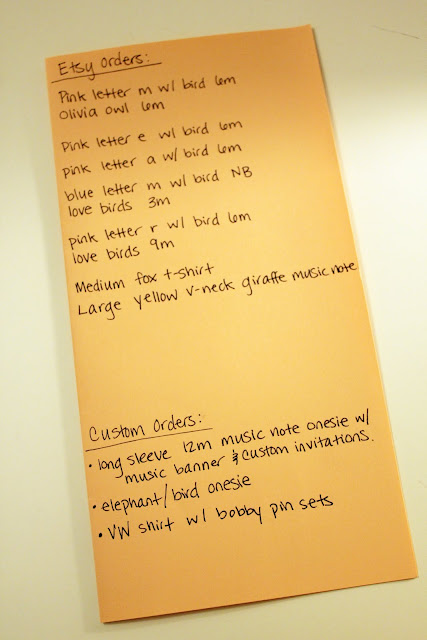 Etsy Orders:
Pink letter m w/ bird 6m
Olivia owl 6m
Pink letter e w/ bird 6m
pink letter a w/ bird 6m
blue letter m w/ bird NB
love birds 3m
pink letter r w/ bird 6m
love birds 9m
Medium fox t-shirt
Large yellow v-neck giraffe music note
Custom Orders:
• long sleeve 12m music note onesie w/
music banner & custom invitations.
• elephant/bird onesie
• VW shirt w/ bobby pin sets